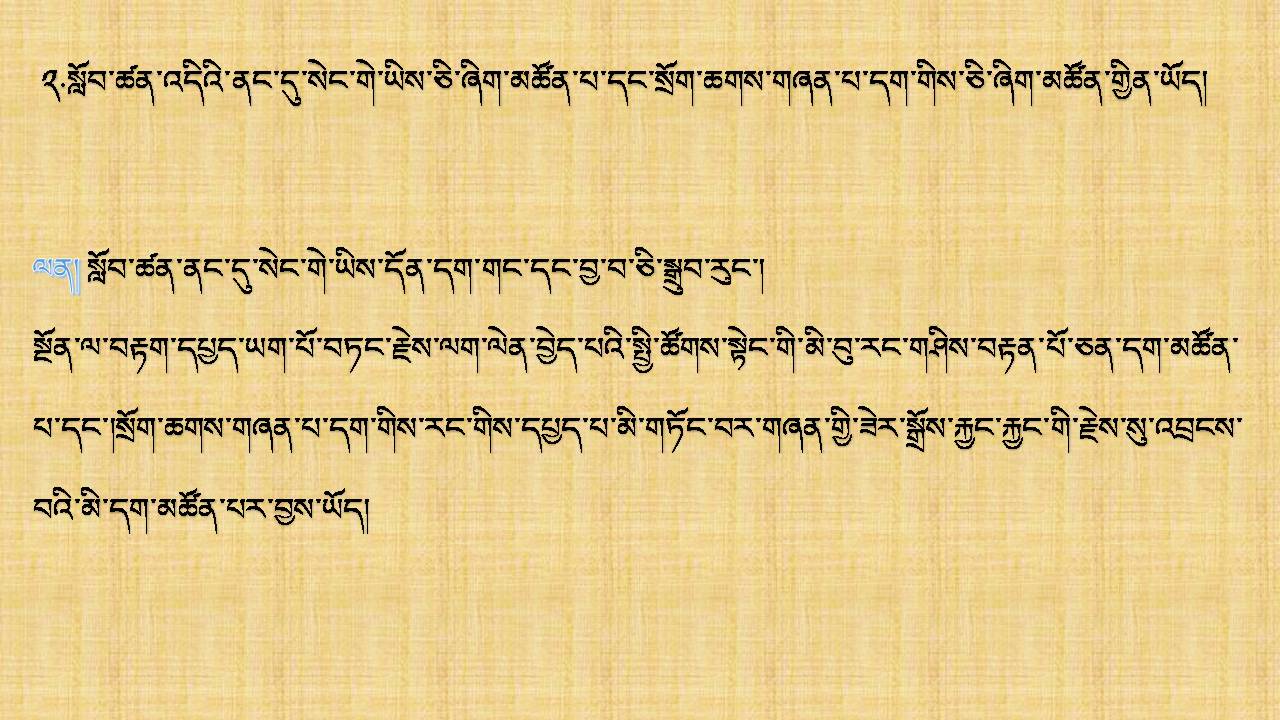 ༢.སློབ་ཚན་འདིའི་ནང་དུ་སེང་གེ་ཡིས་ཅི་ཞིག་མཚོན་པ་དང་སྲོག་ཆགས་གཞན་པ་དག་གིས་ཅི་ཞིག་མཚོན་གྱིན་ཡོད།
ལན། སློབ་ཚན་ནང་དུ་སེང་གེ་ཡིས་དོན་དག་གང་དང་བྱ་བ་ཅི་སྒྲུབ་རུང་།
སྔོན་ལ་བརྟག་དཔྱད་ཡག་པོ་བཏང་རྗེས་ལག་ལེན་བྱེད་པའི་སྤྱི་ཚོགས་སྟེང་གི་མི་བུ་རང་གཤིས་བརྟན་པོ་ཅན་དག་མཚོན་
པ་དང་།སྲོག་ཆགས་གཞན་པ་དག་གིས་རང་གིས་དཔྱད་པ་མི་གཏོང་བར་གཞན་གྱི་ཟེར་སྒྲོས་རྐྱང་རྐྱང་གི་རྗེས་སུ་འབྲངས་
བའི་མི་དག་མཚོན་པར་བྱས་ཡོད།